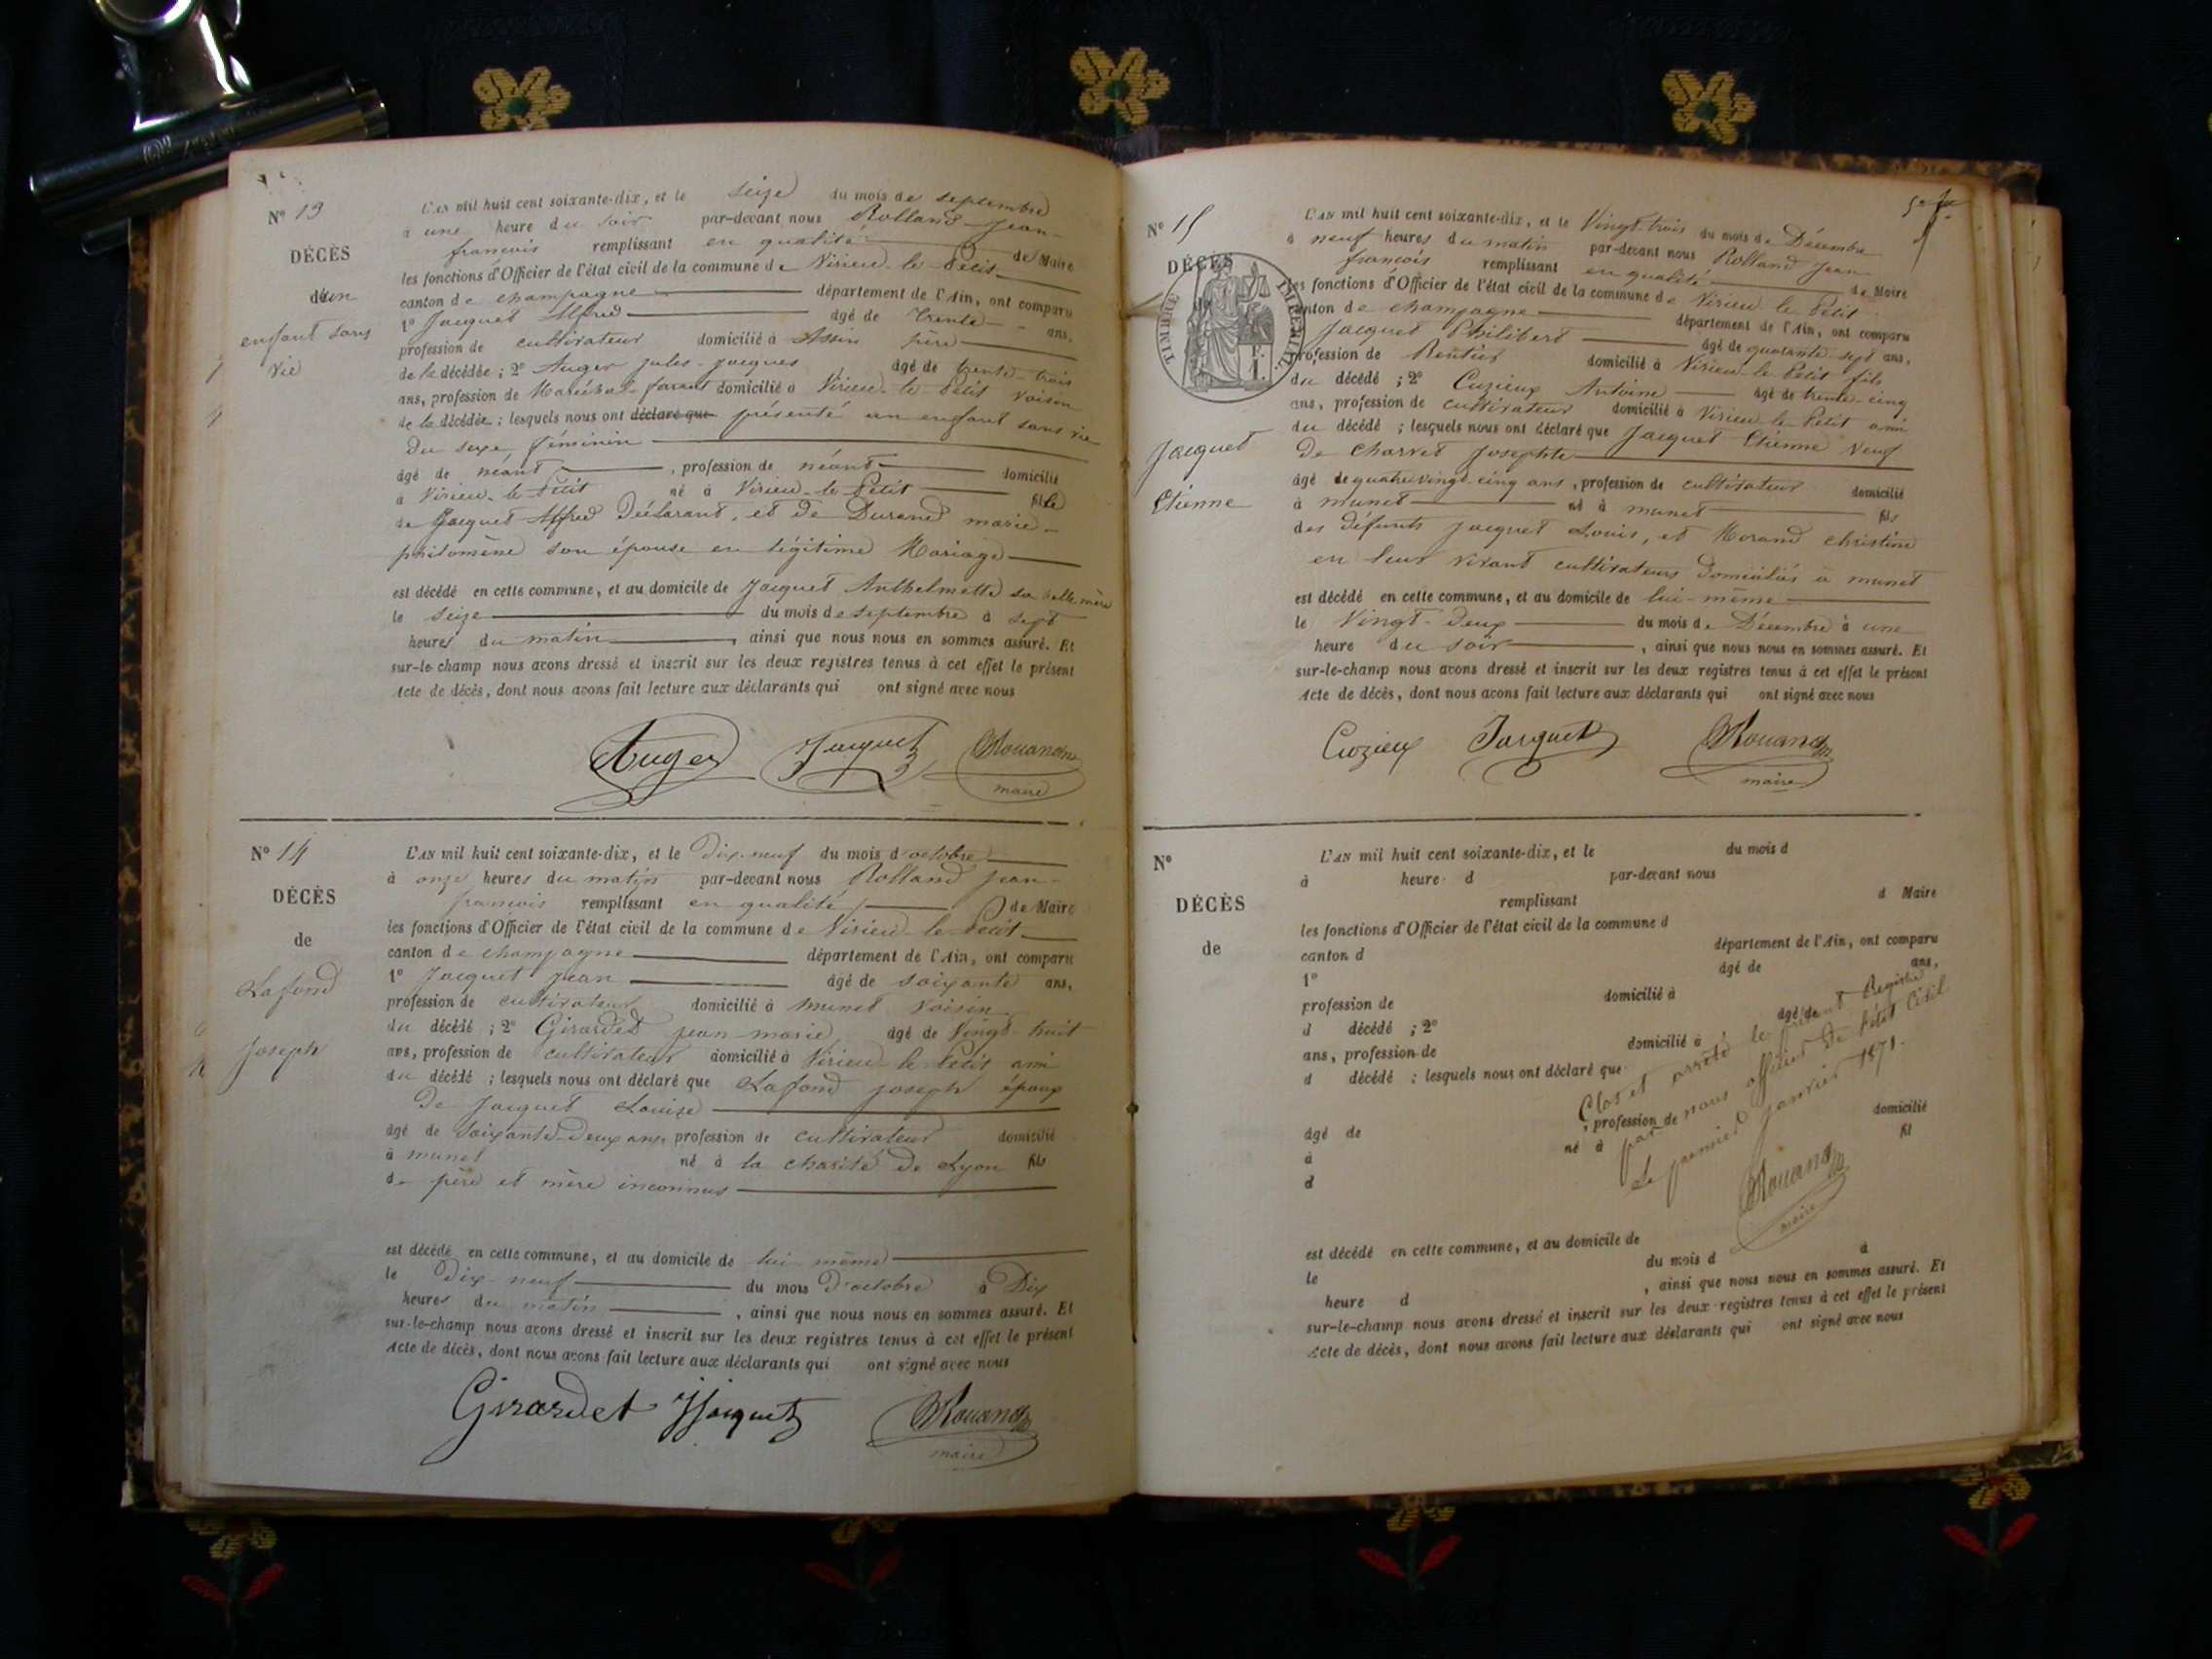 Nº 13
DÉCÈS
d'un
enfant sans
vie
L'AN mil huit cent soixante-dix, et le seize du mois de septembre
à une heure du soir par-devant nous Rolland Jean-
françois remplissant en qualité de Maire
les fonctions d'Officier de l'état civil de la commune de Virieu-le-Petit
canton de champagne département de l'Ain, ont comparu
1º Jacquet Alfred âgé de trente ans,
profession de cultivateur domicilié à Assin père
de la décédée ; 2º Auger Jules-Jacques âgé de trente-trois
ans, profession de Maréchal-ferrant domicilié à Virieu-le-Petit voisin
de la décédée ; lesquels nous ont déclaré que présenté un enfant sans vie
du sexe féminin
âgé de néant, profession de néant domicilié
à Virieu-le-Petit né à Virieu-le-Petit fille
de Jacquet Alfred Déclarant, et de Durand marie-
philomène son épouse en légitime Mariage
est décédé en cette commune, et au domicile de Jacquet Anthelmette sa belle mère
le seize du mois de septembre à sept
heures du matin, ainsi que nous nous en sommes assuré. Et
sur-le-champ nous avons dressé et inscrit sur les deux registres tenus à cet effet le présent
Acte de décès, dont nous avons fait lecture aux déclarants qui ont signé avec nous
Auger Jacquet
maire
Nº 14
DÉCÈS
de
Lafond
Joseph
L'AN mil huit cent soixante-dix, et le Dix-neuf du mois d'octobre
à onze heures du matin par-devant nous Rolland Jean-
françois remplissant en qualité de Maire
les fonctions d'Officier de l'état civil de la commune de Virieu-le-Petit
canton de champagne département de l'Ain, ont comparu
1º Jacquet Jean âgé de soixante ans,
profession de cultivateur domicilié à munet voisin
du décédé ; 2º Girardet Jean-marie âgé de Vingt-huit
ans, profession de cultivateur domicilié à Virieu-le-Petit ami
du décédé ; lesquels nous ont déclaré que Lafond Joseph époux
de Jacquet Louise
âgé de soixante-Deux ans profession de cultivateur domicilié
à munet né à la charité de Lyon fils
de père et mère inconnus
est décédé en cette commune, et au domicile de lui même
le Dix-neuf du mois d'octobre à Dix
heures du matin, ainsi que nous nous en sommes assuré. Et
sur-le-champ nous avons dressé et inscrit sur les deux registres tenus à cet effet le présent
Acte de décès, dont nous avons fait lecture aux déclarants qui ont signé avec nous
Girardet JJacquet
maire
Nº 15
DÉCÈS
TIMBRE IMPÉRIAL
Jacquet
Etienne
L'AN mil huit cent soixante-dix, et le Vingt-trois du mois de Décembre
à neuf heures du matin par-devant nous Rolland Jean-
françois remplissant en qualité de Maire
les fonctions d'Officier de l'état civil de la commune de Virieu le Petit
canton de champagne département de l'Ain, ont comparu
Jacquet Philibert âgé de quarante-sept ans,
profession de Rentier domicilié à Virieu-le-Petit fils
du décédé ; 2º Cuzieux Antoine âgé de trente-cinq
ans, profession de cultivateur domicilié à Virieu le Petit ami
du décédé ; lesquels nous ont déclaré que Jacquet Etienne Veuf
de Charvet Josephte
âgé de quatre vingt-cinq ans, profession de cultivateur domicilié
à munet né à munet fils
des défunts Jacquet Louis, et Morand christine
en leur vivant cultivateurs Domiciliés à munet
est décédé en cette commune, et au domicile de lui-même
le Vingt-Deux du mois de Décembre à une
heure du soir, ainsi que nous nous en sommes assuré. Et
sur-le-champ nous avons dressé et inscrit sur les deux registres tenus à cet effet le présent
Acte de décès, dont nous avons fait lecture aux déclarants qui ont signé avec nous
Cuzieux Jacquet
maire
Nº
DÉCÈS
de
L'AN mil huit cent soixante-dix, et le du mois d
à heure d par-devant nous
remplissant d Maire
les fonctions d'Officier de l'état civil de la commune d
canton d département de l'Ain, ont comparu
1º âgé de ans,
profession de domicilié à
d décédé ; 2º âgé de
ans, profession de domicilié à
d décédé ; lesquels nous ont déclaré que
Clos et arrêté le présent Registre
par nous officier de l'état Civil
Le premier Janvier 1871.
maire
âgé de , profession de domicilié
à né à fil
d
est décédé en cette commune, et au domicile de
le du mois d à
heure d , ainsi que nous nous en sommes assuré. Et
sur-le-champ nous avons dressé et inscrit sur les deux registres tenus à cet effet le présent
Acte de décès, dont nous avons fait lecture aux déclarants qui ont signé avec nous